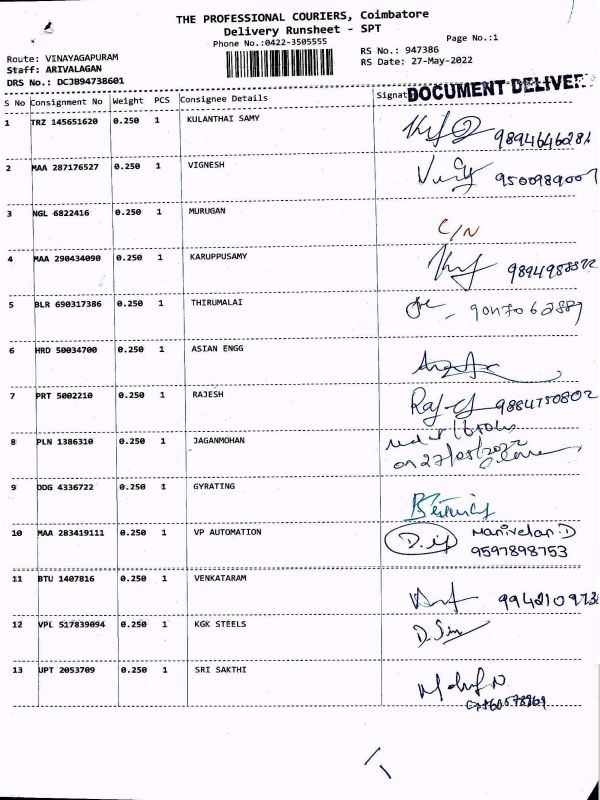 THE PROFESSIONAL COURIERS, Coimbatore
Delivery Runsheet - SPT
Phone No.:0422-3505555
Page No.:1
Route: VINAYAGAPURAM
RS No.: 947386
Staff: ARIVALAGAN
RS Date: 27-May-2022
DRS No.: DCJB94738601
DOCUMENT DELIVER
S No Consignment No Weight PCS Consignee Details Signat
1 TRZ 145651620 0.250 1 KULANTHAI SAMY
9894646281
2 MAA 287176527 0.250 1 VIGNESH
9500989007
3 NGL 6822416 0.250 1 MURUGAN
C/N
4 MAA 290434090 0.250 1 KARUPPUSAMY
5 BLR 690317386 0.250 1 THIRUMALAI
6 HRD 50034700 0.250 1 ASIAN ENGG
7 PRT 5002210 0.250 1 RAJESH
9884750802
8 PLN 1386310 0.250 1 JAGANMOHAN
on 27/05/2022
9 DDG 4336722 0.250 1 GYRATING
10 MAA 283419111 0.250 1 VP AUTOMATION
Manivelan.D
9597898753
11 BTU 1407816 0.250 1 VENKATARAM
994210973
12 VPL 517839094 0.250 1 KGK STEELS
13 UPT 2053709 0.250 1 SRI SAKTHI